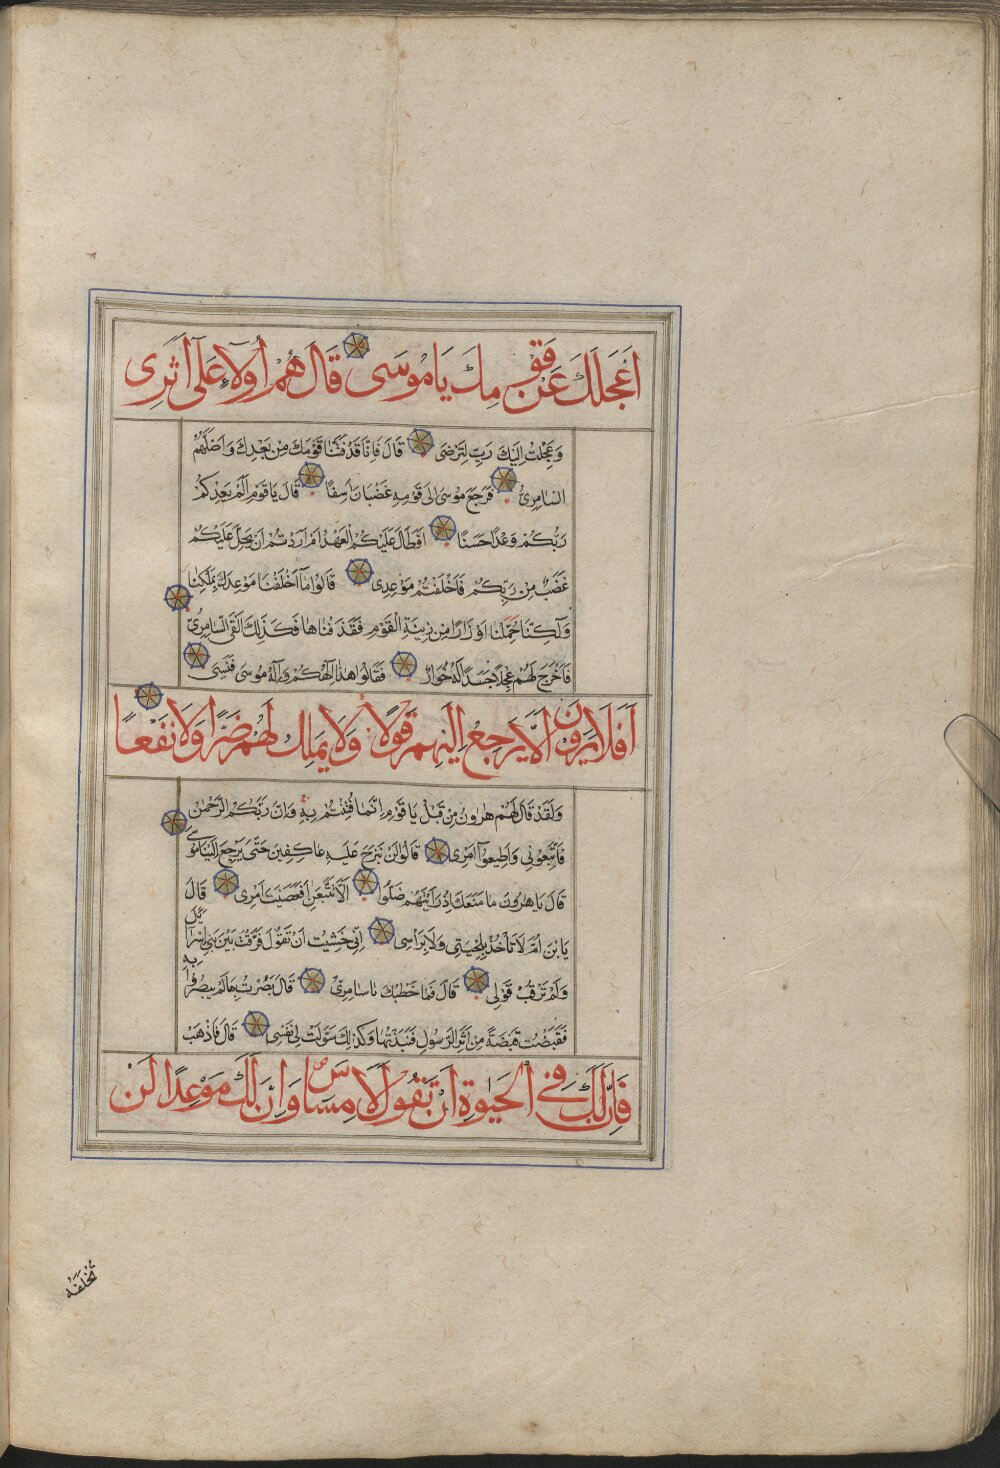 اَعْجَلَكَ عَنْ قَوْمِكَ يَا مُوسَى قَالَ هُمْ اُولَآءِ عَلَى اَثَرِى
وَعَجِلْتُ اِلَيْكَ رَبِّ لِتَرْضَى قَالَ فَاِنَّا قَدْ فَتَنَّا قَوْمَكَ مِنْ بَعْدِكَ وَاَضَلَّهُمُ
السَّامِرِىُّ فَرَجَعَ مُوسَى اِلَى قَوْمِهِ غَضْبَانَ اَسِفًا قَالَ يَا قَوْمِ اَلَمْ يَعِدْكُمْ
رَبُّكُمْ وَعْدًا حَسَنًا اَفَطَالَ عَلَيْكُمُ الْعَهْدُ اَمْ اَرَدْتُمْ اَنْ يَحِلَّ عَلَيْكُمْ
غَضَبٌ مِنْ رَبِّكُمْ فَاَخْلَفْتُمْ مَوْعِدِى قَالُوا مَآ اَخْلَفْنَا مَوْعِدَكَ بِمَلْكِنَا
وَلٰكِنَّا حُمِّلْنَا اَوْزَارًا مِنْ زِينَةِ الْقَوْمِ فَقَذَفْنَاهَا فَكَذٰلِكَ اَلْقَى السَّامِرِىُّ
فَاَخْرَجَ لَهُمْ عِجْلًا جَسَدًا لَهُ خُوَارٌ فَقَالُوا هٰذَا اِلٰهُكُمْ وَاِلٰهُ مُوسَى فَنَسِىَ
اَفَلَا يَرَوْنَ اَلَّا يَرْجِعُ اِلَيْهِمْ قَوْلًا وَلَا يَمْلِكُ لَهُمْ ضَرًّا وَلَا نَفْعًا
وَلَقَدْ قَالَ لَهُمْ هٰرُونُ مِنْ قَبْلُ يَا قَوْمِ اِنَّمَا فُتِنْتُمْ بِهِ وَاِنَّ رَبَّكُمُ الرَّحْمٰنُ
فَاتَّبِعُونِى وَاَطِيعُوٓا اَمْرِى قَالُوا لَنْ نَبْرَحَ عَلَيْهِ عَاكِفِينَ حَتَّى يَرْجِعَ اِلَيْنَا مُوسَى
قَالَ يَا هٰرُونُ مَا مَنَعَكَ اِذْ رَاَيْتَهُمْ ضَلُّوا اَلَّا تَتَّبِعَنِ اَفَعَصَيْتَ اَمْرِى قَالَ
يَا بْنَ اُمَّ لَا تَاْخُذْ بِلِحْيَتِى وَلَا بِرَاْسِى اِنِّى خَشِيتُ اَنْ تَقُولَ فَرَّقْتَ بَيْنَ بَنِى اِسْرَآئِيلَ
وَلَمْ تَرْقُبْ قَوْلِى قَالَ فَمَا خَطْبُكَ يَا سَامِرِىُّ قَالَ بَصُرْتُ بِمَا لَمْ يَبْصُرُوا بِهِ
فَقَبَضْتُ قَبْضَةً مِنْ اَثَرِ الرَّسُولِ فَنَبَذْتُهَا وَكَذٰلِكَ سَوَّلَتْ لِى نَفْسِى قَالَ فَاذْهَبْ
فَاِنَّ لَكَ فِى الْحَيٰوةِ اَنْ تَقُولَ لَا مِسَاسَ وَاِنَّ لَكَ مَوْعِدًا لَنْ
تُخْلَفَهُ